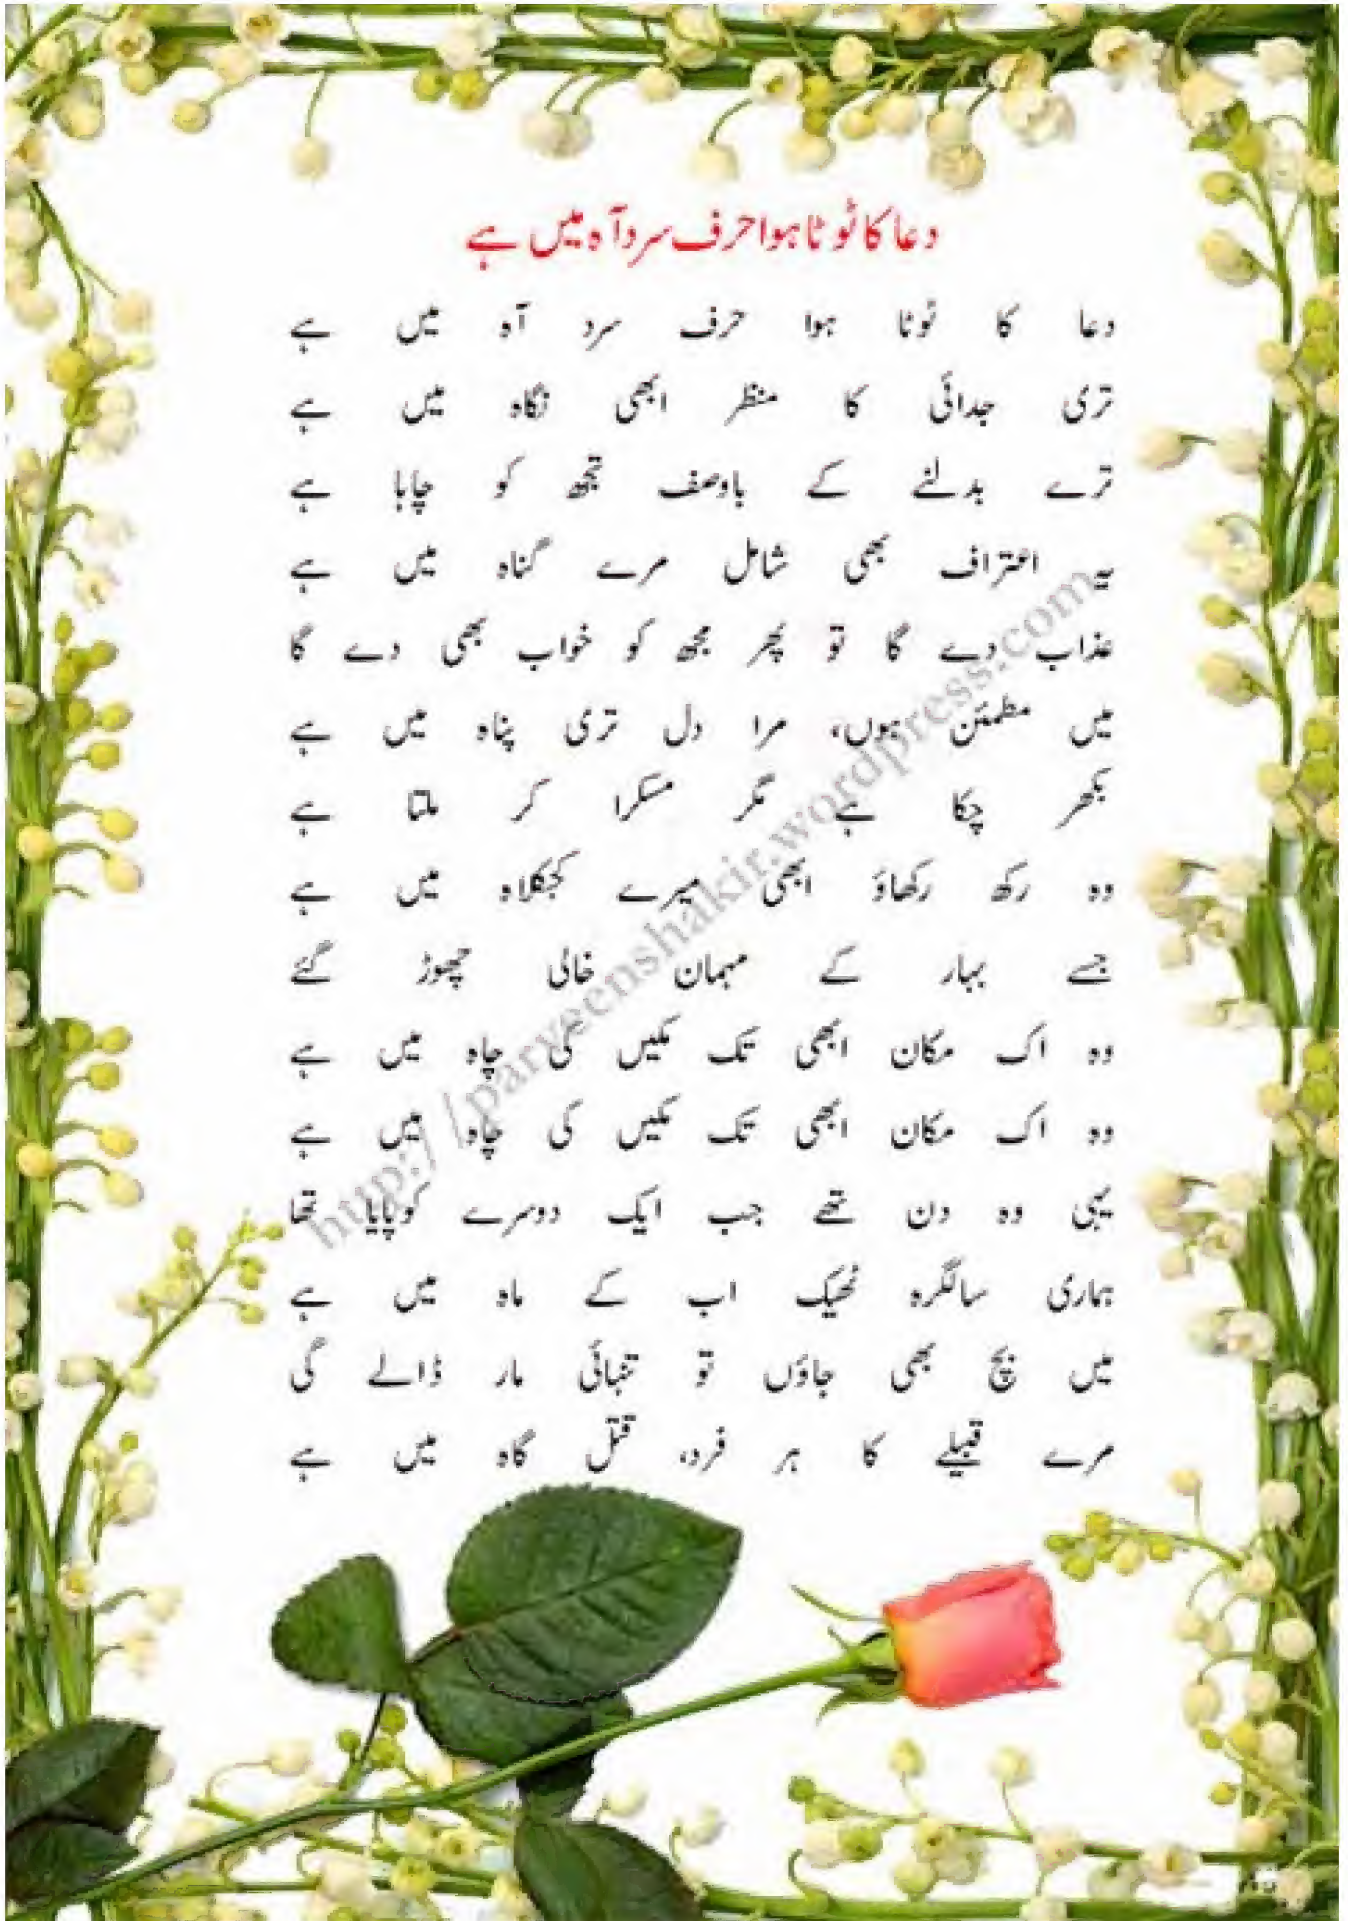 دعا کا ٹوٹا ہوا حرف سرد آہ میں ہے
دعا کا ٹوٹا ہوا حرف سرد آہ میں ہے
تری جدائی کا منظر ابھی نگاہ میں ہے
ترے بدلنے کے باوصف تجھ کو چاہا ہے
یہ اعتراف بھی شامل مرے گناہ میں ہے
عذاب دے گا تو پھر مجھ کو خواب بھی دے گا
میں مطمئن ہوں، مرا دل تری پناہ میں ہے
بکھر چکا ہے مگر مسکرا کر ملتا ہے
وہ رکھ رکھاؤ ابھی میرے کجکلاہ میں ہے
جسے بہار کے مہمان خالی چھوڑ گئے
وہ اک مکان ابھی تک مکیں کی چاہ میں ہے
وہ اک مکان ابھی تک مکیں کی چاہ میں ہے
یہی وہ دن تھے جب ایک دوسرے کو پایا تھا
ہماری سالگرہ ٹھیک اب کے ماہ میں ہے
میں بچ بھی جاؤں تو تنہائی مار ڈالے گی
مرے قبیلے کا ہر فرد، قتل گاہ میں ہے
http://parveenshakir.wordpress.com